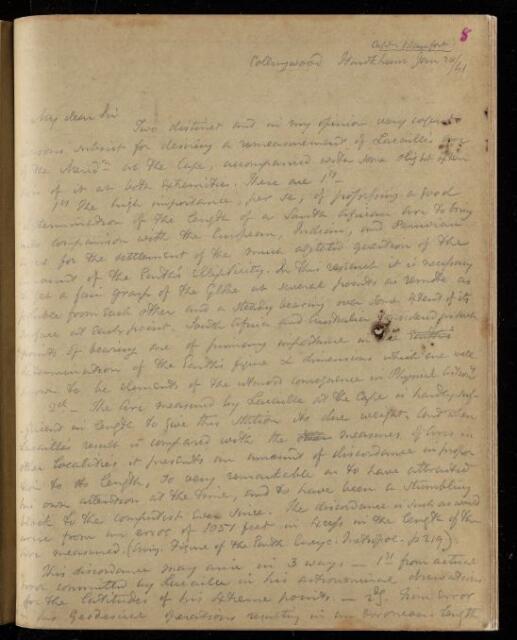 8
Capt. Beaufort
Collingwood Hawkhurst Jan 20/41
My dear Sir
Two distinct and in my opinion very cogent
reasons subsist for desiring a remeasurement of Lacaille's Arc
of the Merid.n at the Cape, accompanied with some slight exten
sion of it at both extremities. These are 1st-
1st The high importance, per se, of possessing a good
determination of the length of a South African Arc to bring
into comparison with the European, Indian, and Peruvian
arcs for the settlement of the much agitated question of the
amount of the Earth's Ellipticity. In this research it is necessary
to get a fair grasp of the Globe at several points as remote as
possible from each other and a steady bearing over some extent of its
surface at each point. South Africa and Australia
points of bearing are of primary importance in
determination of the Earth's figure & dimensions which are well
known to be elements of the utmost consequence in Physical Astron.y
2d - The Arc measured by Lacaille at the Cape is hardly suf-
ficient in length to give this Station its due weight, and when
Lacaille's result is compared with the measures of Arcs in
other Localities it presents an amount of discordance in propor
tion to its length, so very remarkable as to have attracted
his own attention at the time, and to have been a stumbling
block to the computist ever since. The discordance is such as would
arise from an error of 1051 feet in excess in the length of the
arc measured. (Airy. Figure of the Earth Encyc. Metropol. p 219).
This discordance may arise in 3 ways - 1st from actual
error committed by Lacaille in his astronomical observations
for the Latitudes of his extreme points. - 2d. From error
in his Geodesical operations resulting in an erroneous length